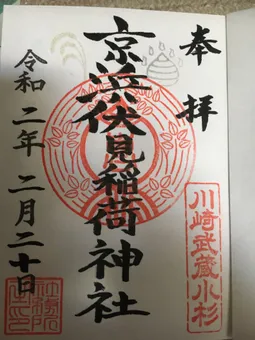 奉拝
川崎武蔵小杉
京浜伏見稲荷神社
令和二年二月二十日
社務所之印